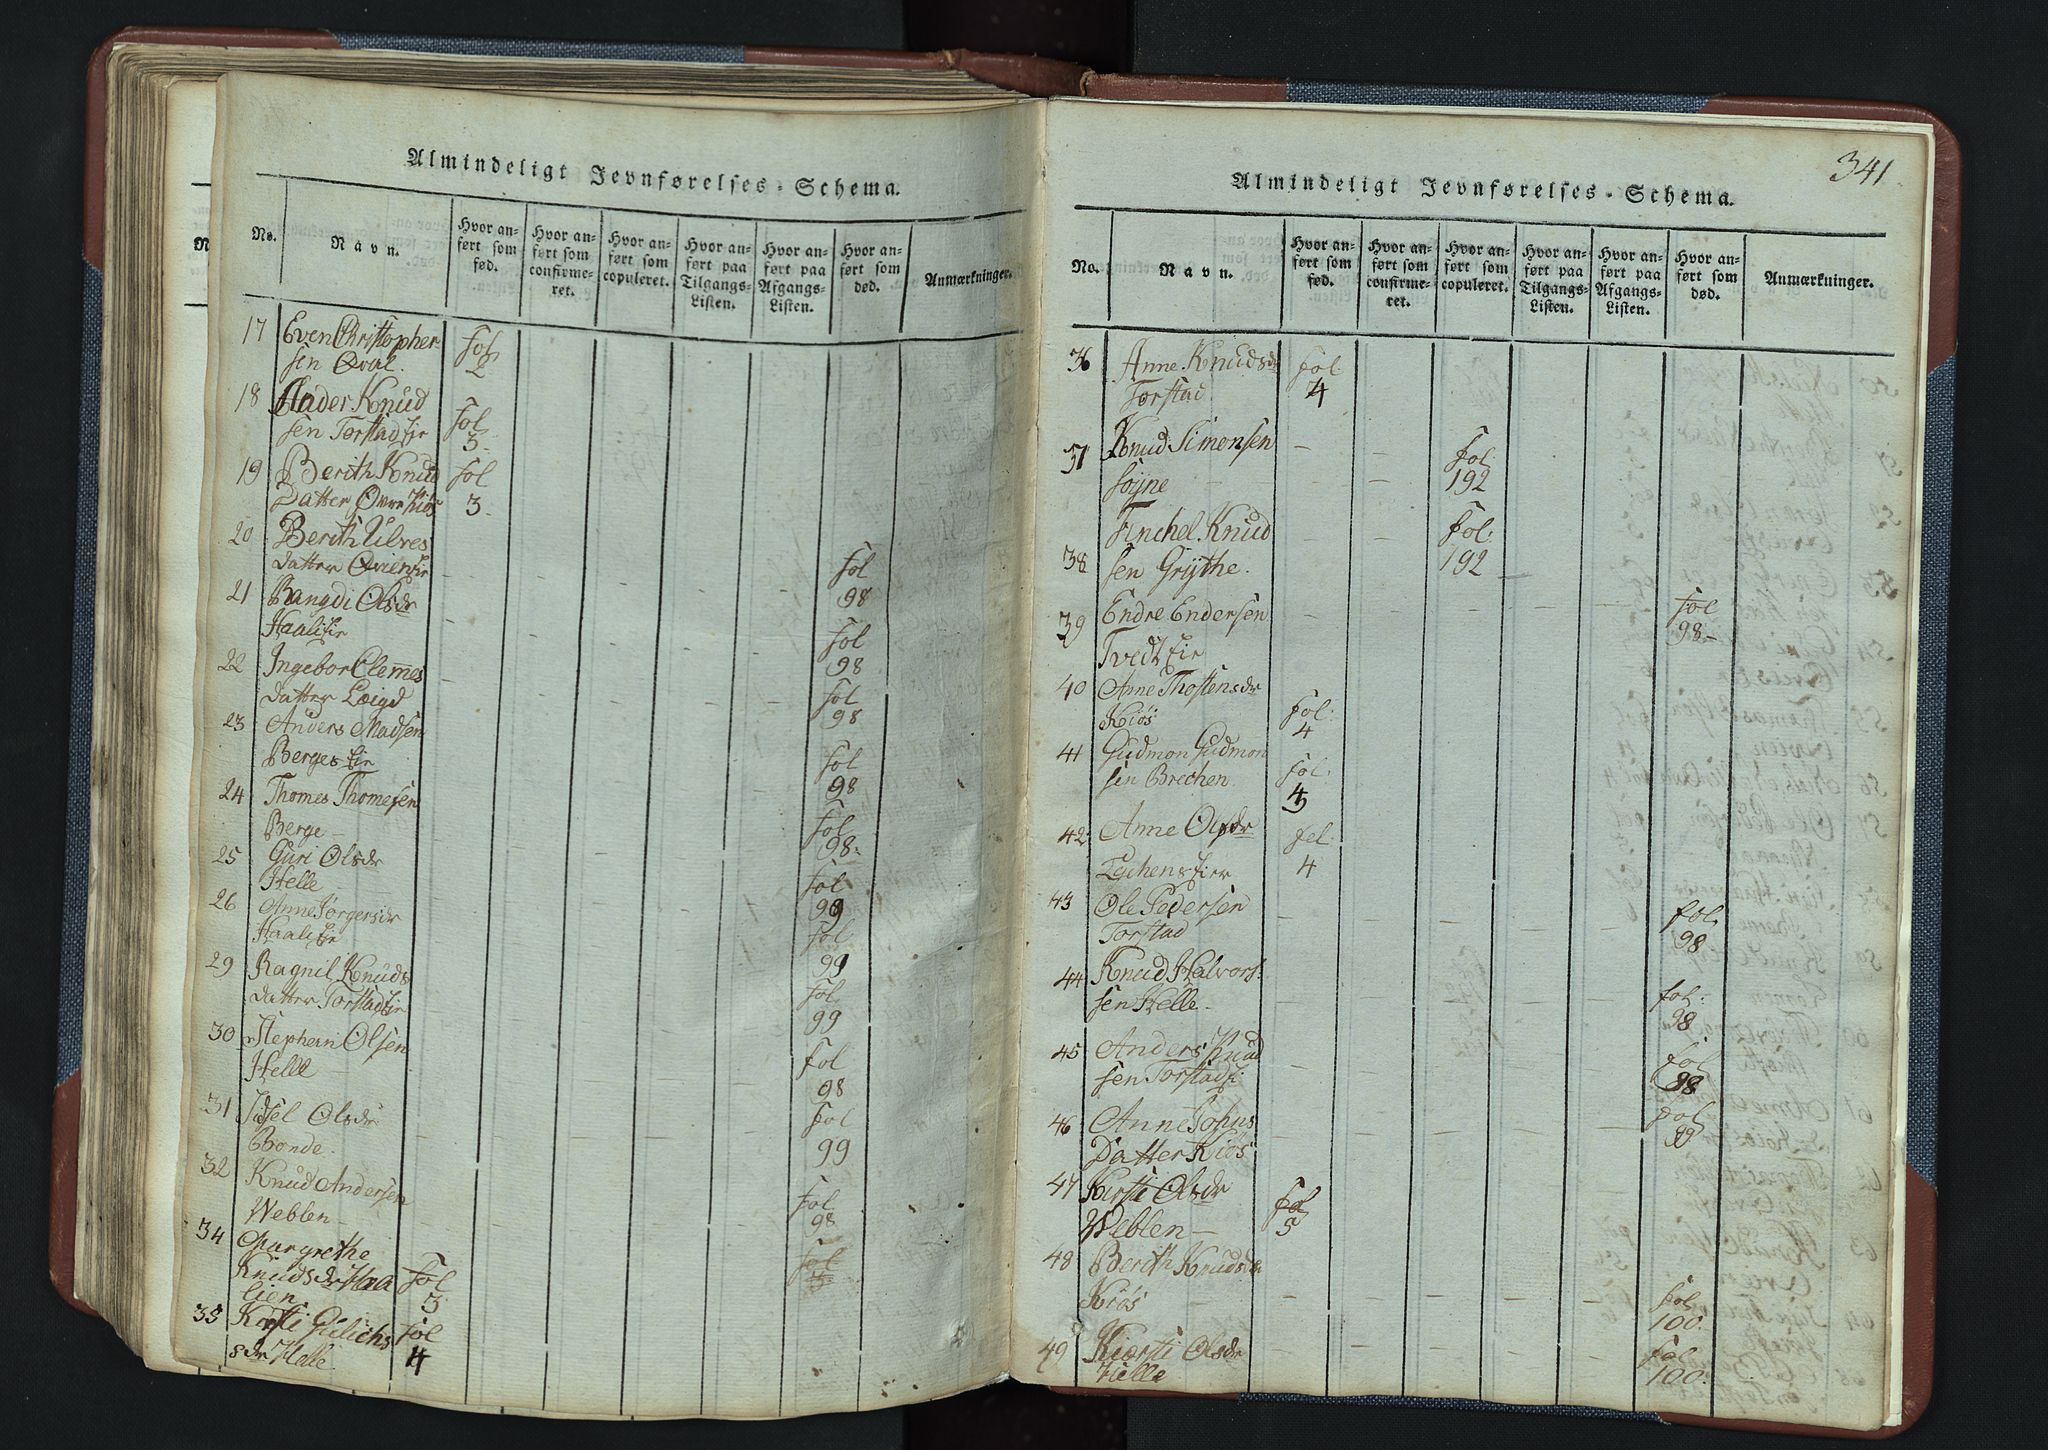 Almindeligt Jevnførelses-Schema.
No.
Navn.
Hvor anført som fød.
Hvor anført som confirmeret.
Hvor anført som copuleret.
Hvor anført paa Tilgangs-Listen.
Hvor anført paa Afgangs-Listen.
Hvor anført som død.
Anmærkninger.
17 Even Christopher- fol
sen Qval. 2
18 Ander Knud fol
sen Torstad Eie 3.
19 Berith Knud fol
Datter Øvre Kiøs 3.
20 Berith Ulves
datter Eie fol 98
21 Rangdi Olsdr
Haali Eie fol 98
22 Ingebor Clemes
datter fol 98
23 Anders Madsen
Berges Eie fol 98
24 Thomes Thomesen
Berge fol 98.
25 Guri Olsdr
Helle fol 99
26 Anne Jørgensdr
Haali Eie fol 99
29 Ragnil Knuds
datter Torstad Eie fol 99
30 Stephern Olsen
Helle fol 98
31 Olsdr
Bonde. fol 99
32 Knud Andersen
Weblen fol 98
34 Margrethe
Knudsdr Haa fol
lien 3.
35 Kersti Gulichs fol
sdr Helle 4
341
Almindeligt Jevnførelses-Schema.
No.
Navn.
Hvor anført som fød.
Hvor anført som confirmeret.
Hvor anført som copuleret.
Hvor anført paa Tilgangs-Listen.
Hvor anført paa Afgangs-Listen.
Hvor anført som død.
Anmærkninger.
36 Anne Knudsdr fol.
Torstad. 4
37 Knud Simensen fol.
Foyne 192
Tinchel Knud fol.
38 sen Grythe. 192
39 Endre Endersen fol
Tvedt Eie 98
40 Anne Thostensdr
Kiøs fol. 4
41 Gudmon Gudmon
sen Brechen. fol. 4
42 Anne Olsdr fol.
4
43 Ole Pedersen fol.
Torstad 98
44 Knud Halvors
sen Helle. fol. 98
45 Anders Knud fol
sen Torstad Ei 98
46 Anne Johns fol
Datter Kiøs 99
47 Kirsti Olsdr fol
Weblen 5
48 Berith Knudsdr
Kiøs fol. 100.
49 Kiersti Olsdr fol
Helle 100.